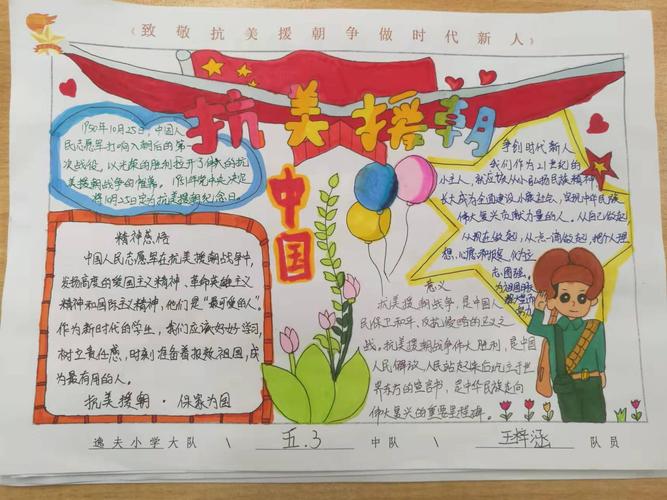 《致敬抗美援朝争做时代新人》
抗美援朝
中国
1950年10月25日，中国人
民志愿军打响入朝后的第一
次战役，以光荣的胜利拉开了伟大的抗
美援朝战争的帷幕。1951年党中央决定
将10月25日定为抗美援朝纪念日。
精神感悟
中国人民志愿军在抗美援朝战争中，
发扬高度的爱国主义精神、革命英雄主义
精神和国际主义精神，他们是“最可爱的人”。
作为新时代的学生，我们应该好好学习，
树立责任感，时刻准备着报效祖国，成
为最有用的人。
抗美援朝·保家为国
争创时代新人
我们作为21世纪的
小主人，就应该从小弘扬民族精神，
长大成为全面建设小康社会，实现中华民族
伟大复兴贡献力量的人。从自己做起
从现在做起，从点滴做起，把个人理
想、
志图强，
为祖国
努力
意义
抗美援朝战争，是中国人
民保卫和平、反抗侵略的正义之
战，抗美援朝战争伟大胜利，是中国
人民解放人民站起来后屹立于世
界东方的宣言书，是中华民族走向
伟大复兴的重要里程碑。
逸夫小学大队 \ 五.3 中队 \ 王梓涵 队员